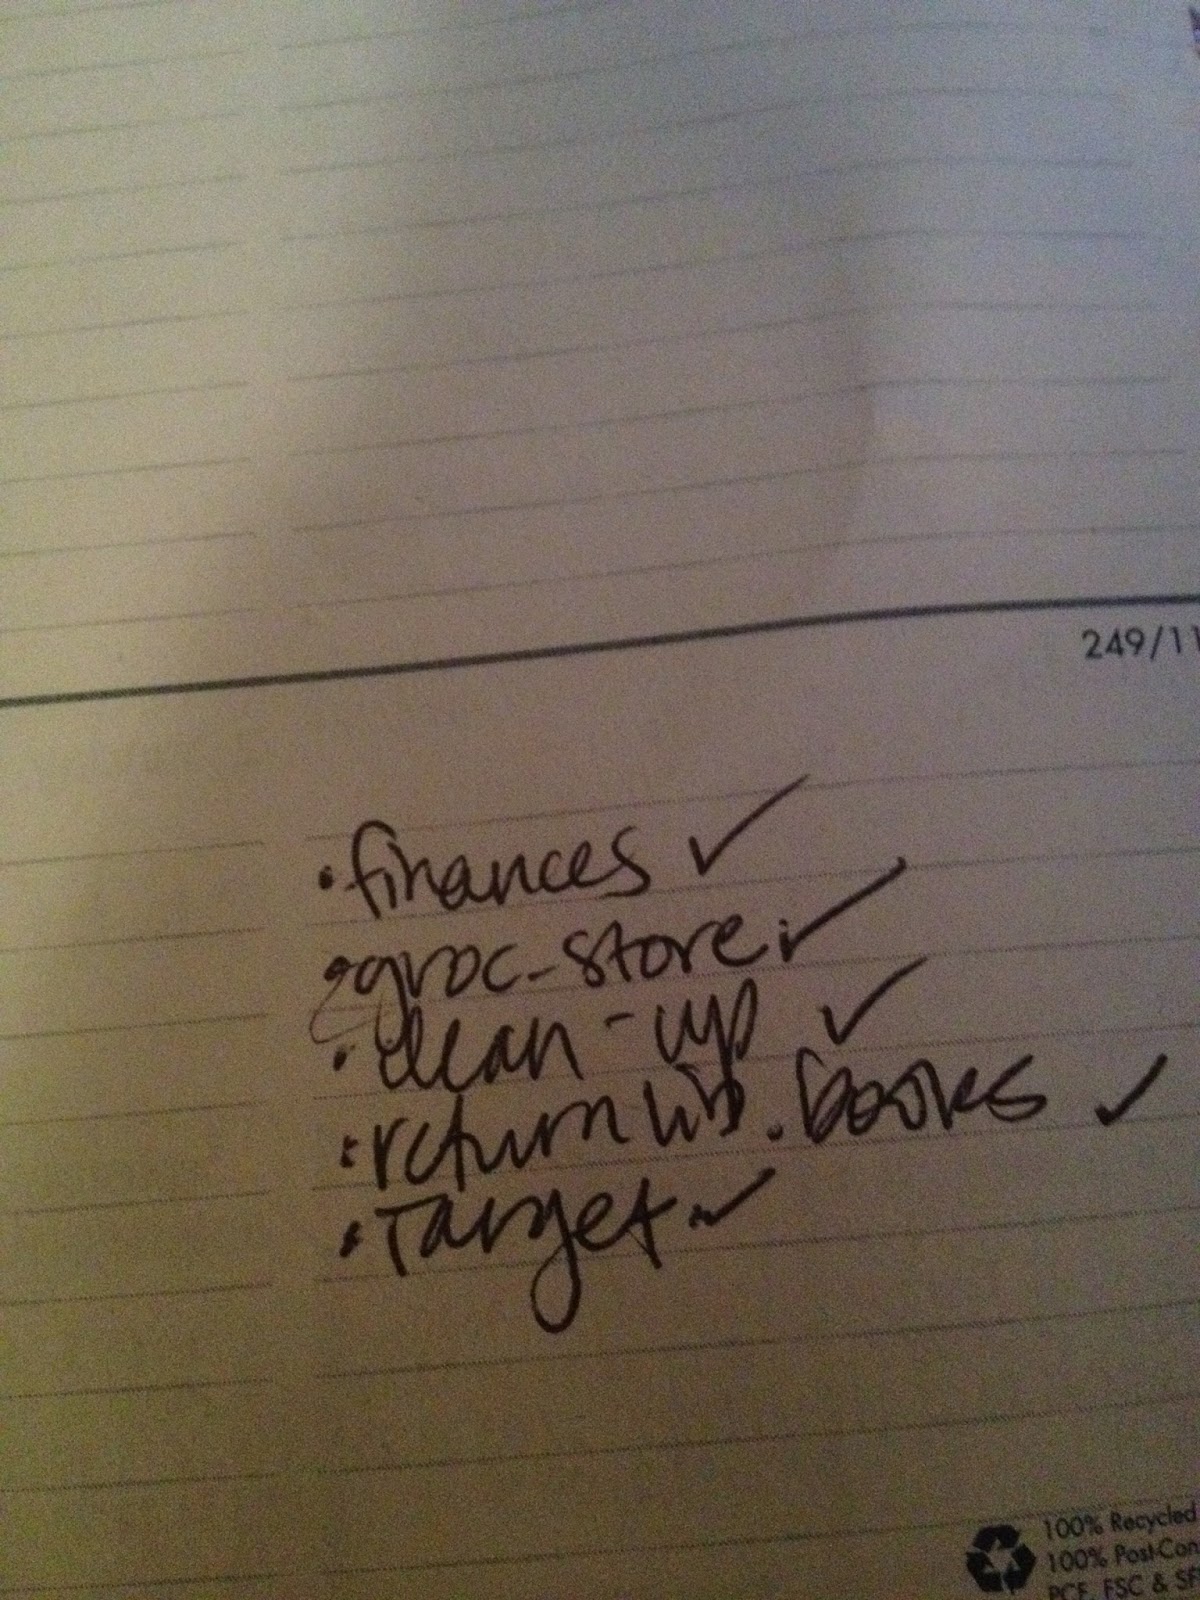 249/11
• finances ✓
• groc-store ✓
• clean-up ✓
• return lib. books ✓
• Target ✓
100% Recycled
100% Post-Con
PCF, FSC & SF